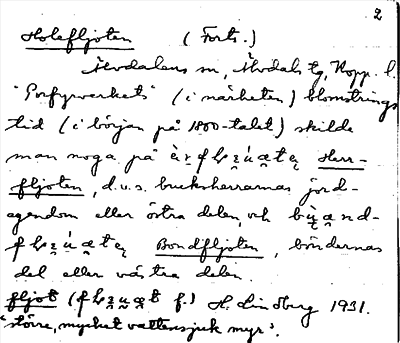 2
Holefljoten (Forts.)
Älvdalens sn, Älvdals tg, Kopp. l.
"Porfyrverkets" (i närheten) blomstrings
tid (i början på 1800-talet) skilde
man noga på Herr-
fljoten, d.v.s. bruksherrarnas jord-
agendom eller östra delen, och
Bondfljoten, böndernas
del eller västra delen.
fljot f.) H. Lindberg 1931.
"större, mycket vattensjuk myr".